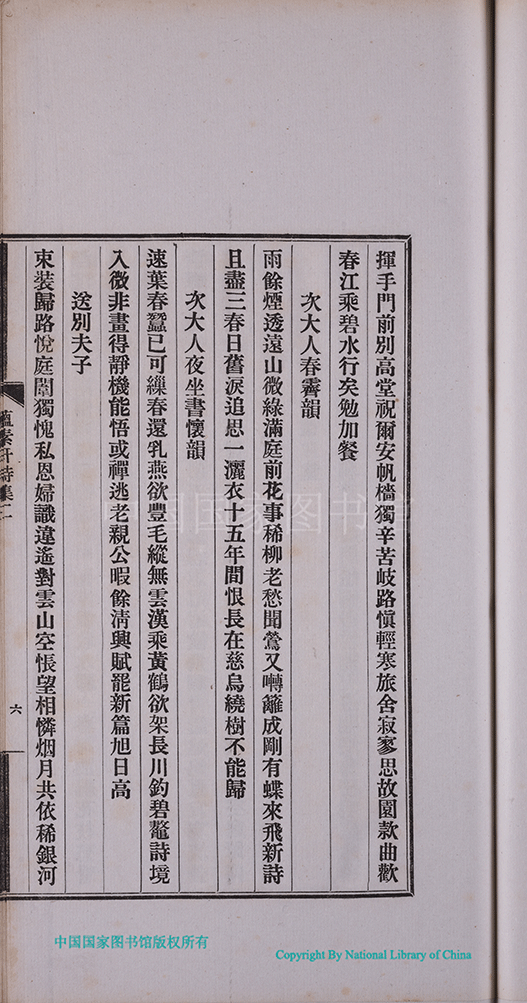 揮手門前別高堂祝爾安帆檣獨辛苦岐路愼輕寒旅舍寂寥思故園款曲歡
春江乘碧水行矣勉加餐
次大人春霽韻
雨餘煙透遠山微綠滿庭前花事稀柳老愁聞鶯又囀籬成剛有蝶來飛新詩
且盡三春日舊淚追思一灑衣十五年間恨長在慈烏繞樹不能歸
次大人夜坐書懷韻
速葉春蠶已可繅春還乳燕欲豐毛縱無雲漢乘黃鶴欲架長川釣碧鼇詩境
入微非畫得靜機能悟或禪逃老親公暇餘淸興賦罷新篇旭日高
送別夫子
束裝歸路悅庭闈獨愧私恩婦識違遙對雲山空悵望相憐烟月共依稀銀河
蘊素軒詩集二
六
中国国家图书馆
中国国家图书馆版权所有
Copyright By National Library of China